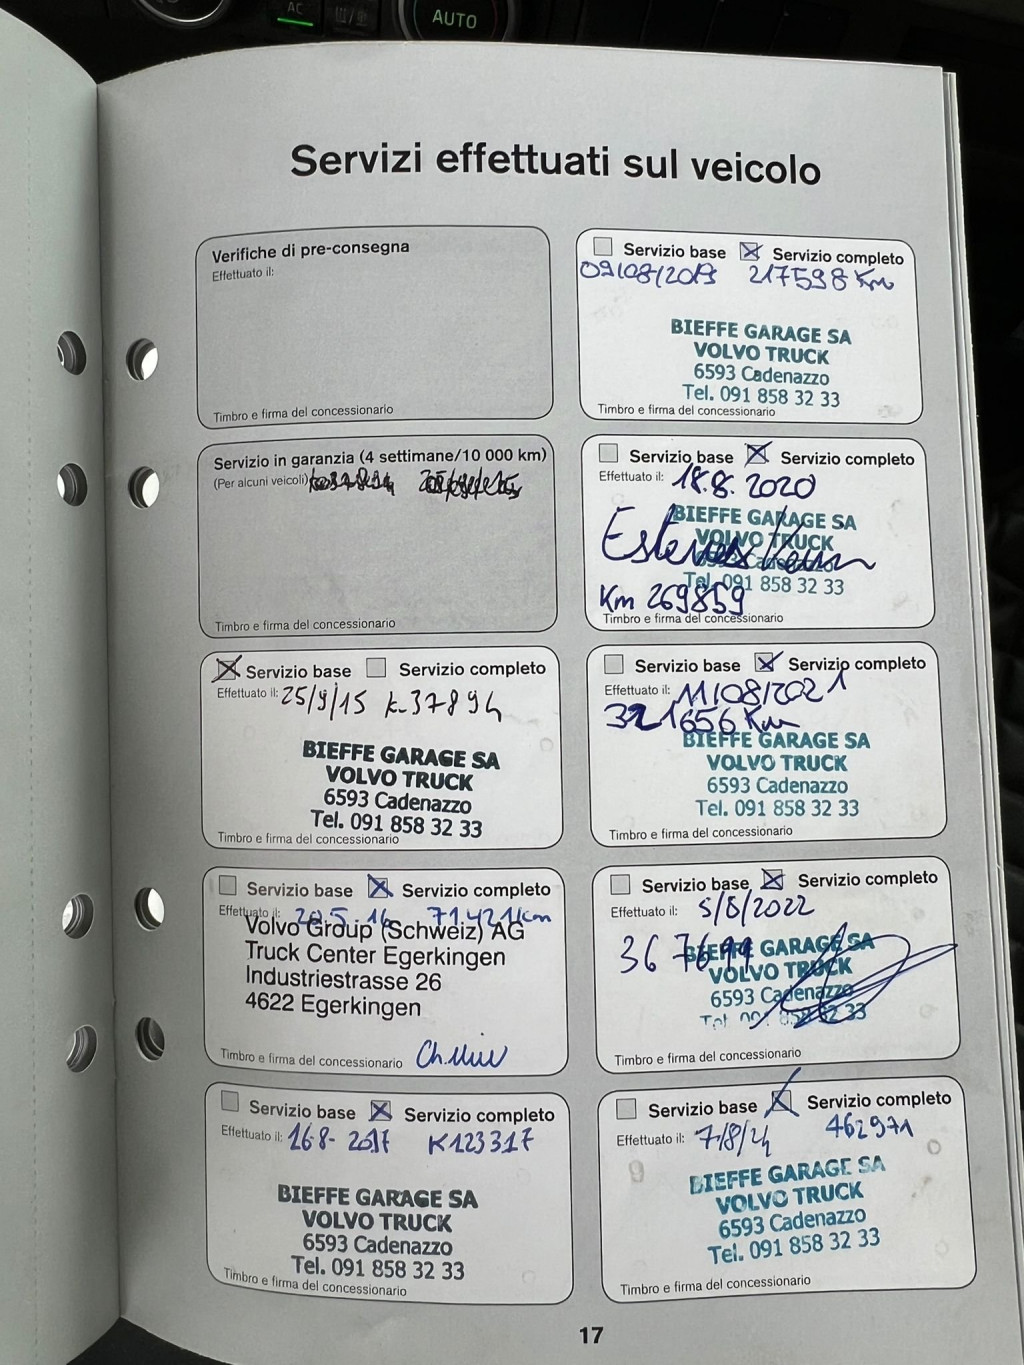 AC
AUTO
Servizi effettuati sul veicolo
Verifiche di pre-consegna
Effettuato il:
Timbro e firma del concessionario
Servizio in garanzia (4 settimane/10 000 km)
(Per alcuni veicoli)
Timbro e firma del concessionario
Servizio base Servizio completo
Effettuato il: 25/9/15 K-37894
BIEFFE GARAGE SA
VOLVO TRUCK
6593 Cadenazzo
Tel. 091 858 32 33
Timbro e firma del concessionario
Servizio base Servizio completo
Effettuato il: 20.5.16 71.421 km
Volvo Group (Schweiz) AG
Truck Center Egerkingen
Industriestrasse 26
4622 Egerkingen
Timbro e firma del concessionario
Servizio base Servizio completo
Effettuato il: 16-8-2017 K123317
BIEFFE GARAGE SA
VOLVO TRUCK
6593 Cadenazzo
Tel. 091 858 32 33
Timbro e firma del concessionario
Servizio base Servizio completo
09/08/2019 217598 Km
BIEFFE GARAGE SA
VOLVO TRUCK
6593 Cadenazzo
Tel. 091 858 32 33
Timbro e firma del concessionario
Servizio base Servizio completo
Effettuato il: 18.8.2020
BIEFFE GARAGE SA
VOLVO TRUCK
6593 Cadenazzo
Tel. 091 858 32 33
Km 269859
Timbro e firma del concessionario
Servizio base Servizio completo
Effettuato il: 11/08/2021
321656 Km
BIEFFE GARAGE SA
VOLVO TRUCK
6593 Cadenazzo
Tel. 091 858 32 33
Timbro e firma del concessionario
Servizio base Servizio completo
Effettuato il: 5/8/2022
BIEFFE GARAGE SA
VOLVO TRUCK
6593 Cadenazzo
Tel. 091 858 32 33
Timbro e firma del concessionario
Servizio base Servizio completo
Effettuato il: 7/8/24 462971
BIEFFE GARAGE SA
VOLVO TRUCK
6593 Cadenazzo
Tel. 091 858 32 33
Timbro e firma del concessionario
17